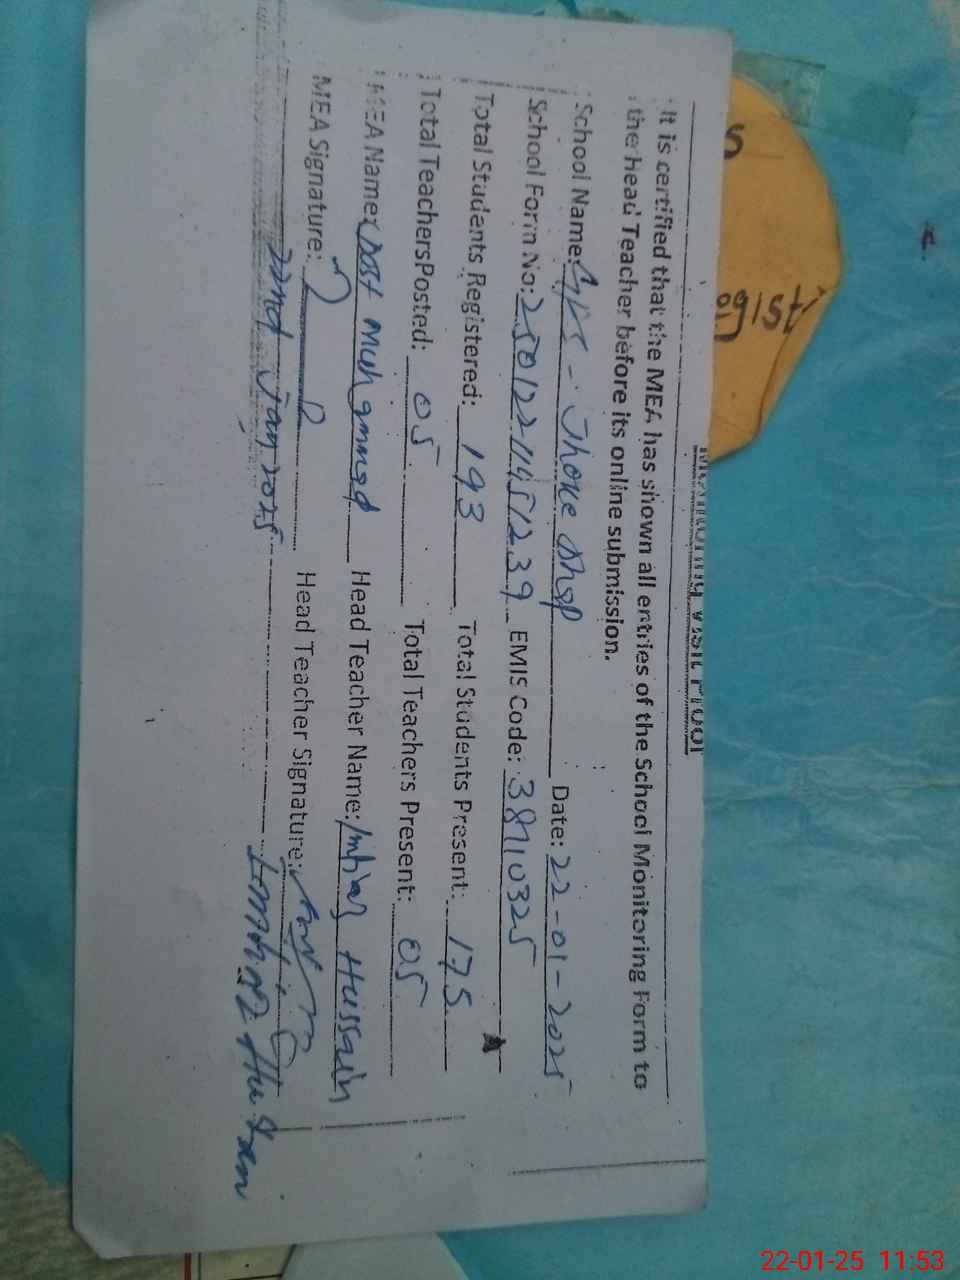 Monitoring Visit Proof
It is certified that the MEA has shown all entries of the School Monitoring Form to
the head Teacher before its online submission.
School Name: GPS - Jhoke Shop Date: 22-01-2025
School Form No: 25012211451239 EMIS Code: 38710325
Total Students Registered: 193 Total Students Present: 175
Total TeachersPosted: 05 Total Teachers Present: 05
MEA Name: Dost Muhammad Head Teacher Name: Imtiaz Hussain
MEA Signature: Head Teacher Signature:
22nd Jan 2025 Imtiaz Hussain
ogist
22-01-25 11:53